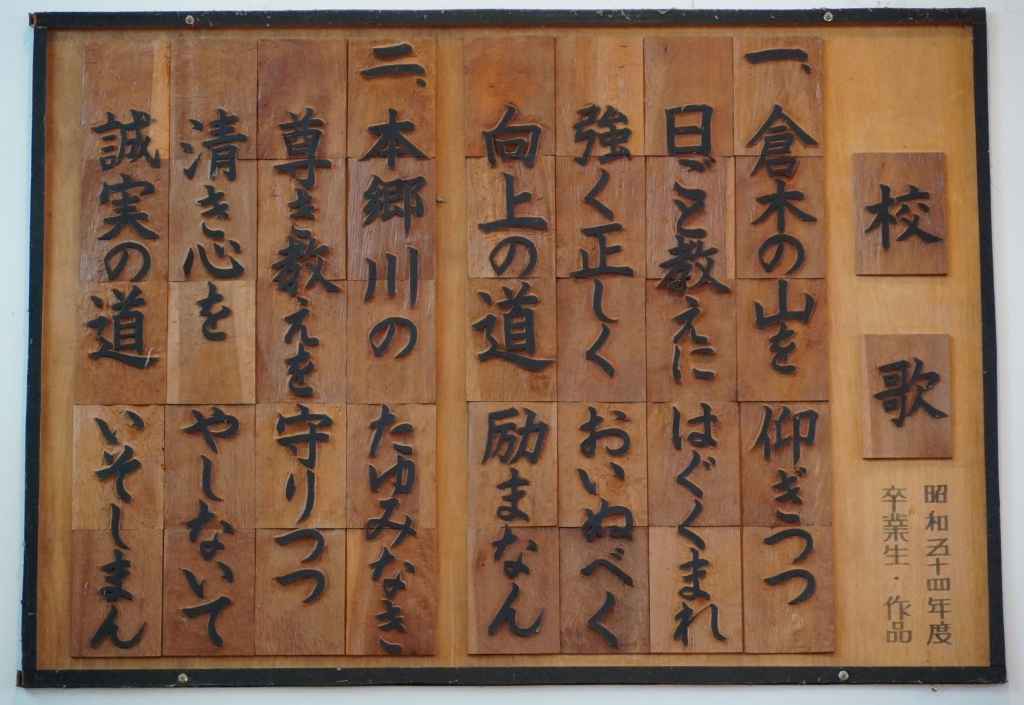 校歌
昭和五十四年度
卒業生・作品
一、倉木の山を 仰ぎつつ
日ごと教えに はぐくまれ
強く正しく おいぬべく
向上の道 励まなん
二、本郷川の たゆみなき
尊き教えを 守りつつ
清き心を やしないて
誠実の道 いそしまん